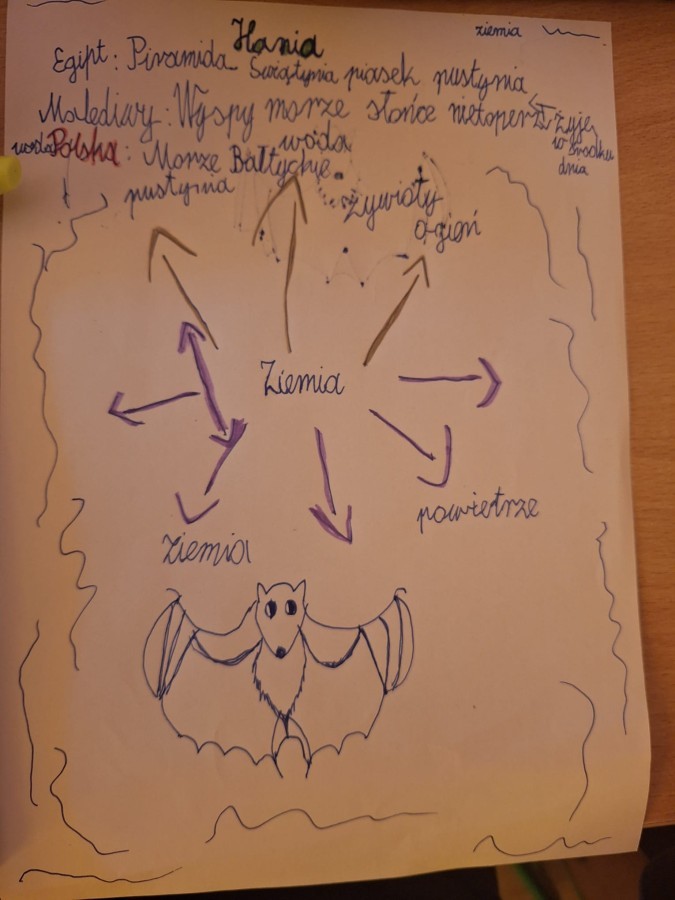 Hania
ziemia
Egipt: Piramida Świątynia piasek pustynia
Malediwy: Wyspy morze słońce nietoperz żyje
w środku
dnia
woda Polska: Morze Bałtyckie.
woda
pustynia
żywioły
ogień
Ziemia
powietrze
ziemia